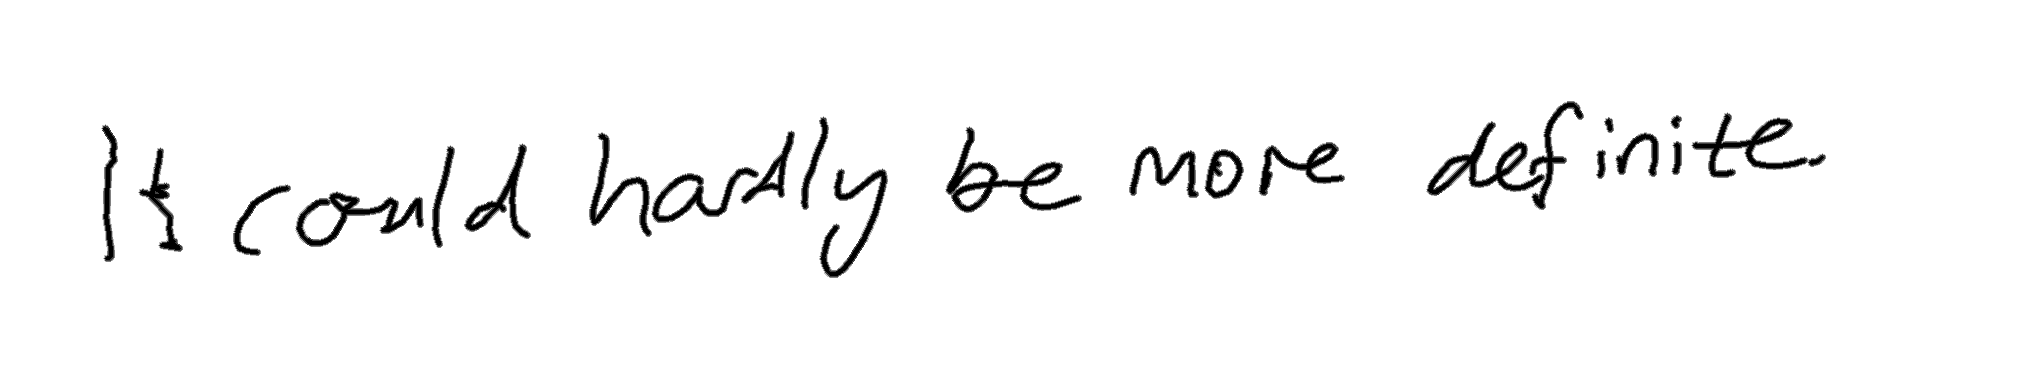 It could hardly be more definite.